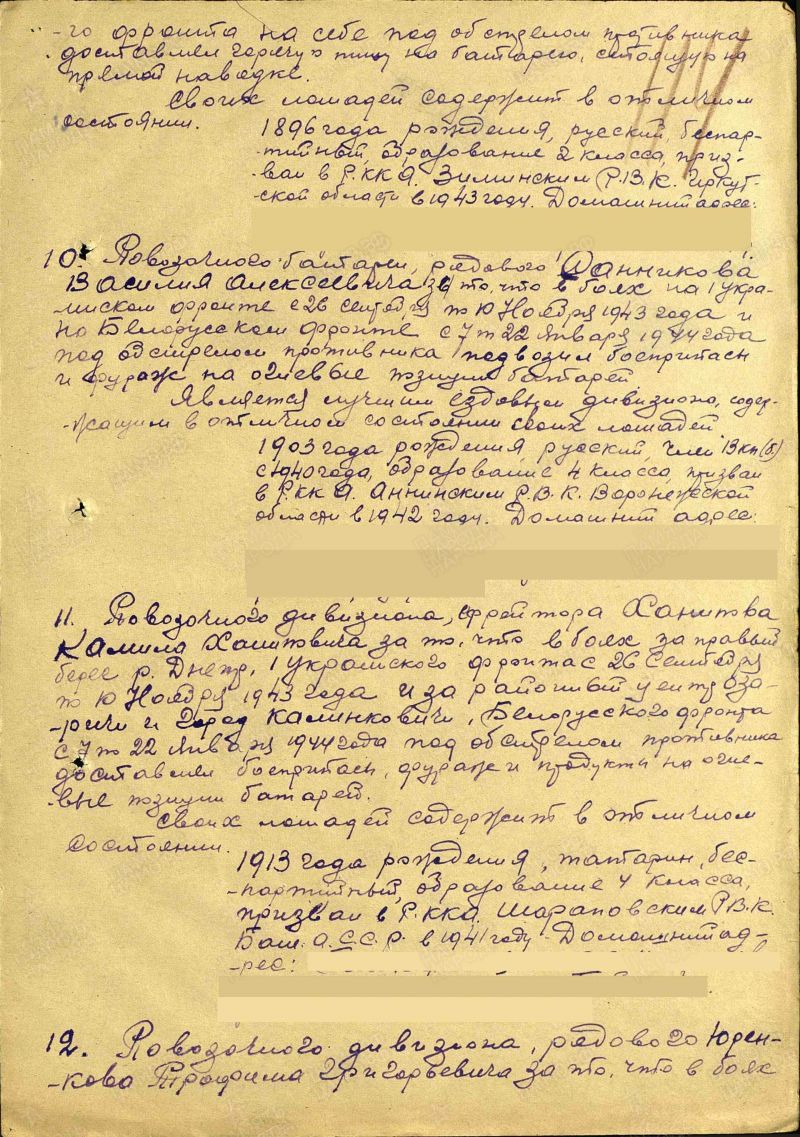 -го фронта на себе под обстрелом противника
доставлял горячую пищу на батарею, стоящую на
прямой наводке.
Своих лошадей содержит в отличном
состоянии.
1896 года рождения, русский, беспар-
-тийный, образование 2 класса, приз-
ван в РККА. Зиминским Р.В.К. Иркут-
-ской области в 1943 году. Домашний адрес:
10. Повозочного батареи, рядового Данникова
Василия Алексеевича за то, что в боях на 1 Укра-
-инском фронте с 26 Сентября по 10 Ноября 1943 года и
на Белорусском фронте с 7 по 22 Января 1944 года
под обстрелом противника подвозил боеприпасы
и фураж на огневые позиции батарей.
Является лучшим ездовым дивизиона, содер-
-жащим в отличном состоянии своих лошадей.
1903 года рождения, русский, член ВКП(б)
с 1940 года, образование 4 класса, призван
в РККА. Аннинским Р.В.К. Воронежской
области в 1942 году. Домашний адрес:
11. Повозочного дивизиона, ефрейтора Ханипова
Камила Ханиповича за то, что в боях за правый
берег р. Днепр, 1 Украинского фронта с 26 Сентября
по 10 Ноября 1943 года и за районный центр Оза-
-ричи и город Калинковичи, Белорусского фронта
с 7 по 22 Января 1944 года под обстрелом противника
доставлял боеприпасы, фураж и продукты на огне-
-вые позиции батарей.
Своих лошадей содержит в отличном
состоянии.
1913 года рождения, татарин, бес-
-партийный, образование 4 класса,
призван в РККА. Шарановским Р.В.К.
Баш. А.С.С.Р. в 1941 году. Домашний ад-
-рес:
12. Повозочного дивизиона, рядового Юрен-
-кова Трофима Григорьевича за то, что в боях